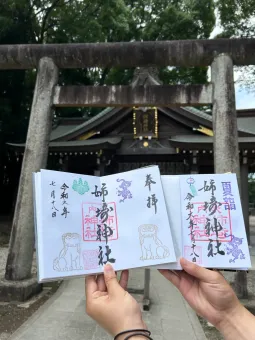 奉拝
姉埼神社
令和二年
七月十八日
夏詣
姉埼神社
令和二年
七月十八日